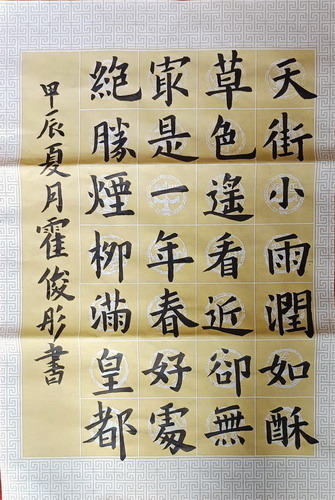 天街小雨潤如酥
草色遥看近卻無
㝡是一年春好處
絕勝煙柳滿皇都
甲辰夏月霍俊彤書